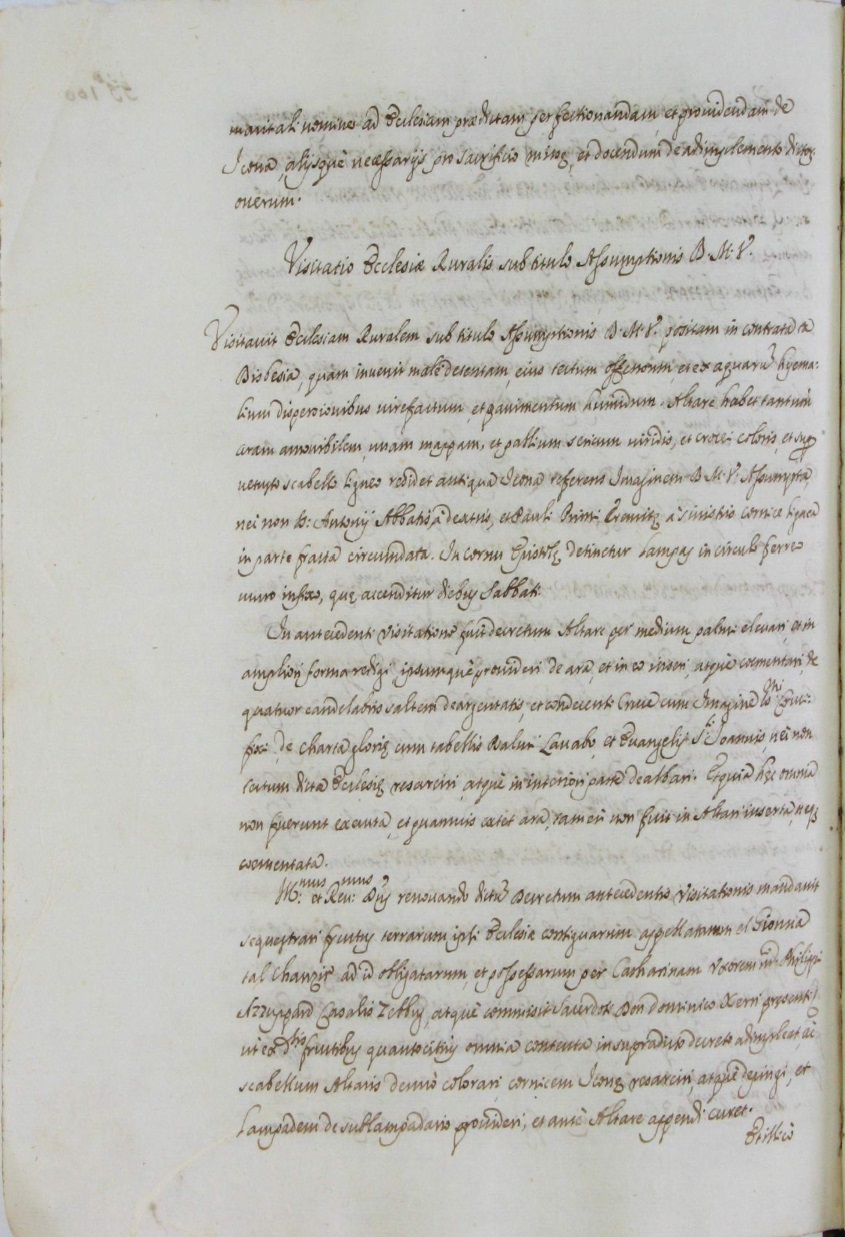 maritali nomine ad Ecclesiam prædictam perfectionandam, et providendam de
Icona, alijsquè necessarijs pro sacrificio missę, et docendum de adimplemento dictor.
onerum.
Visitatio Ecclesiæ Ruralis sub titulo Assumptionis B. M. V.
Visitavit Ecclesiam Ruralem sub titulo Assumptionis B. M. V. positam in contrata ta
Bisbesia, quam invenit malè detentam, eius tectum et ex aquarũ hyema-
lium dispersionibus putrefactum, et pavimentum humidum. Altare habet tantum
aram amovibilem, unam mappam, et pallium sericum viridis, et crocei coloris, et
vetusto scabello ligneo redidet antiqua Icona referens Imaginem B. M. V. Assumptę,
nec non S. Antonij Abbatis, à dextris, et Pauli Primi Eremitę à sinistris cornice lignea
in parte fracta circumdata. In cornu Epistolę detinetur Lampas in circulo ferreo
muro infixo, quę accenditur diebus Sabbati.
In antecedenti Visitatione fuit decretum Altare per medium palmi elevari, et in
ampliori forma redigi, ipsumquè provideri de ara, et in eo inseri, atquè coementari, de
quatuor candelabris saltem deargentatis, et condecenti Cruce cum Imagine Xti Cruci-
fixi, de charta glorię cum tabellis Psalmi Lavabo, et Evangelij Sti Joannis, nec non
tectum dictæ Ecclesię resarciri, atquè in interiori parte dealbari. Et quia hęc omnia
non fuerunt executa, et quamvis extet ara, tamen non fuit in Altari inserta, neq
coementata.
Illmus et Revmus Dñs renovando dictũ Decretum antecedentis Visitationis mandavit
sequestrari fructus terrarum ipsi Ecclesiæ contiguarum appellatarum el Gionna
tal Chanzir ad id obligatarum, et possessarum per Catharinam Uxorem Philippi
Azzuppard Casalis Zebbug, atquè commisit Sacerdoti Don Dominico Xerri presenti,
ut ex dtis fructibus quantocitius omnia contenta in supradicto decreto adimpleat, ac
scabellum Altaris denuò colorari, cornicem Iconę resarciri, atquè depingi, et
Lampadem de sublampadario provideri, et antè Altare appendi curet.